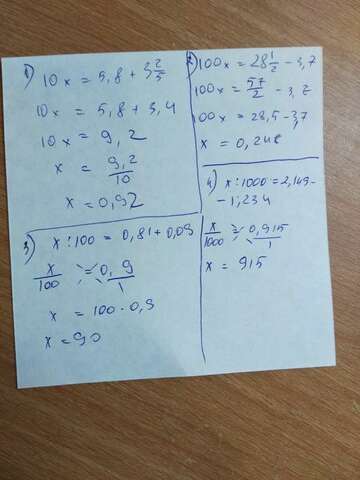 1)
10x = 5,8 + 3 2/5
10x = 5,8 + 3,4
10x = 9,2
x = 9,2/10
x = 0,92
2)
100x = 28 1/2 - 3,7
100x = 57/2 - 3,7
100x = 28,5 - 3,7
x = 0,248
3)
x : 100 = 0,81 + 0,09
x/100 = 0,9/1
x = 100 · 0,9
x = 90
4)
x : 1000 = 2,149 -
- 1,234
x/1000 = 0,915/1
x = 915